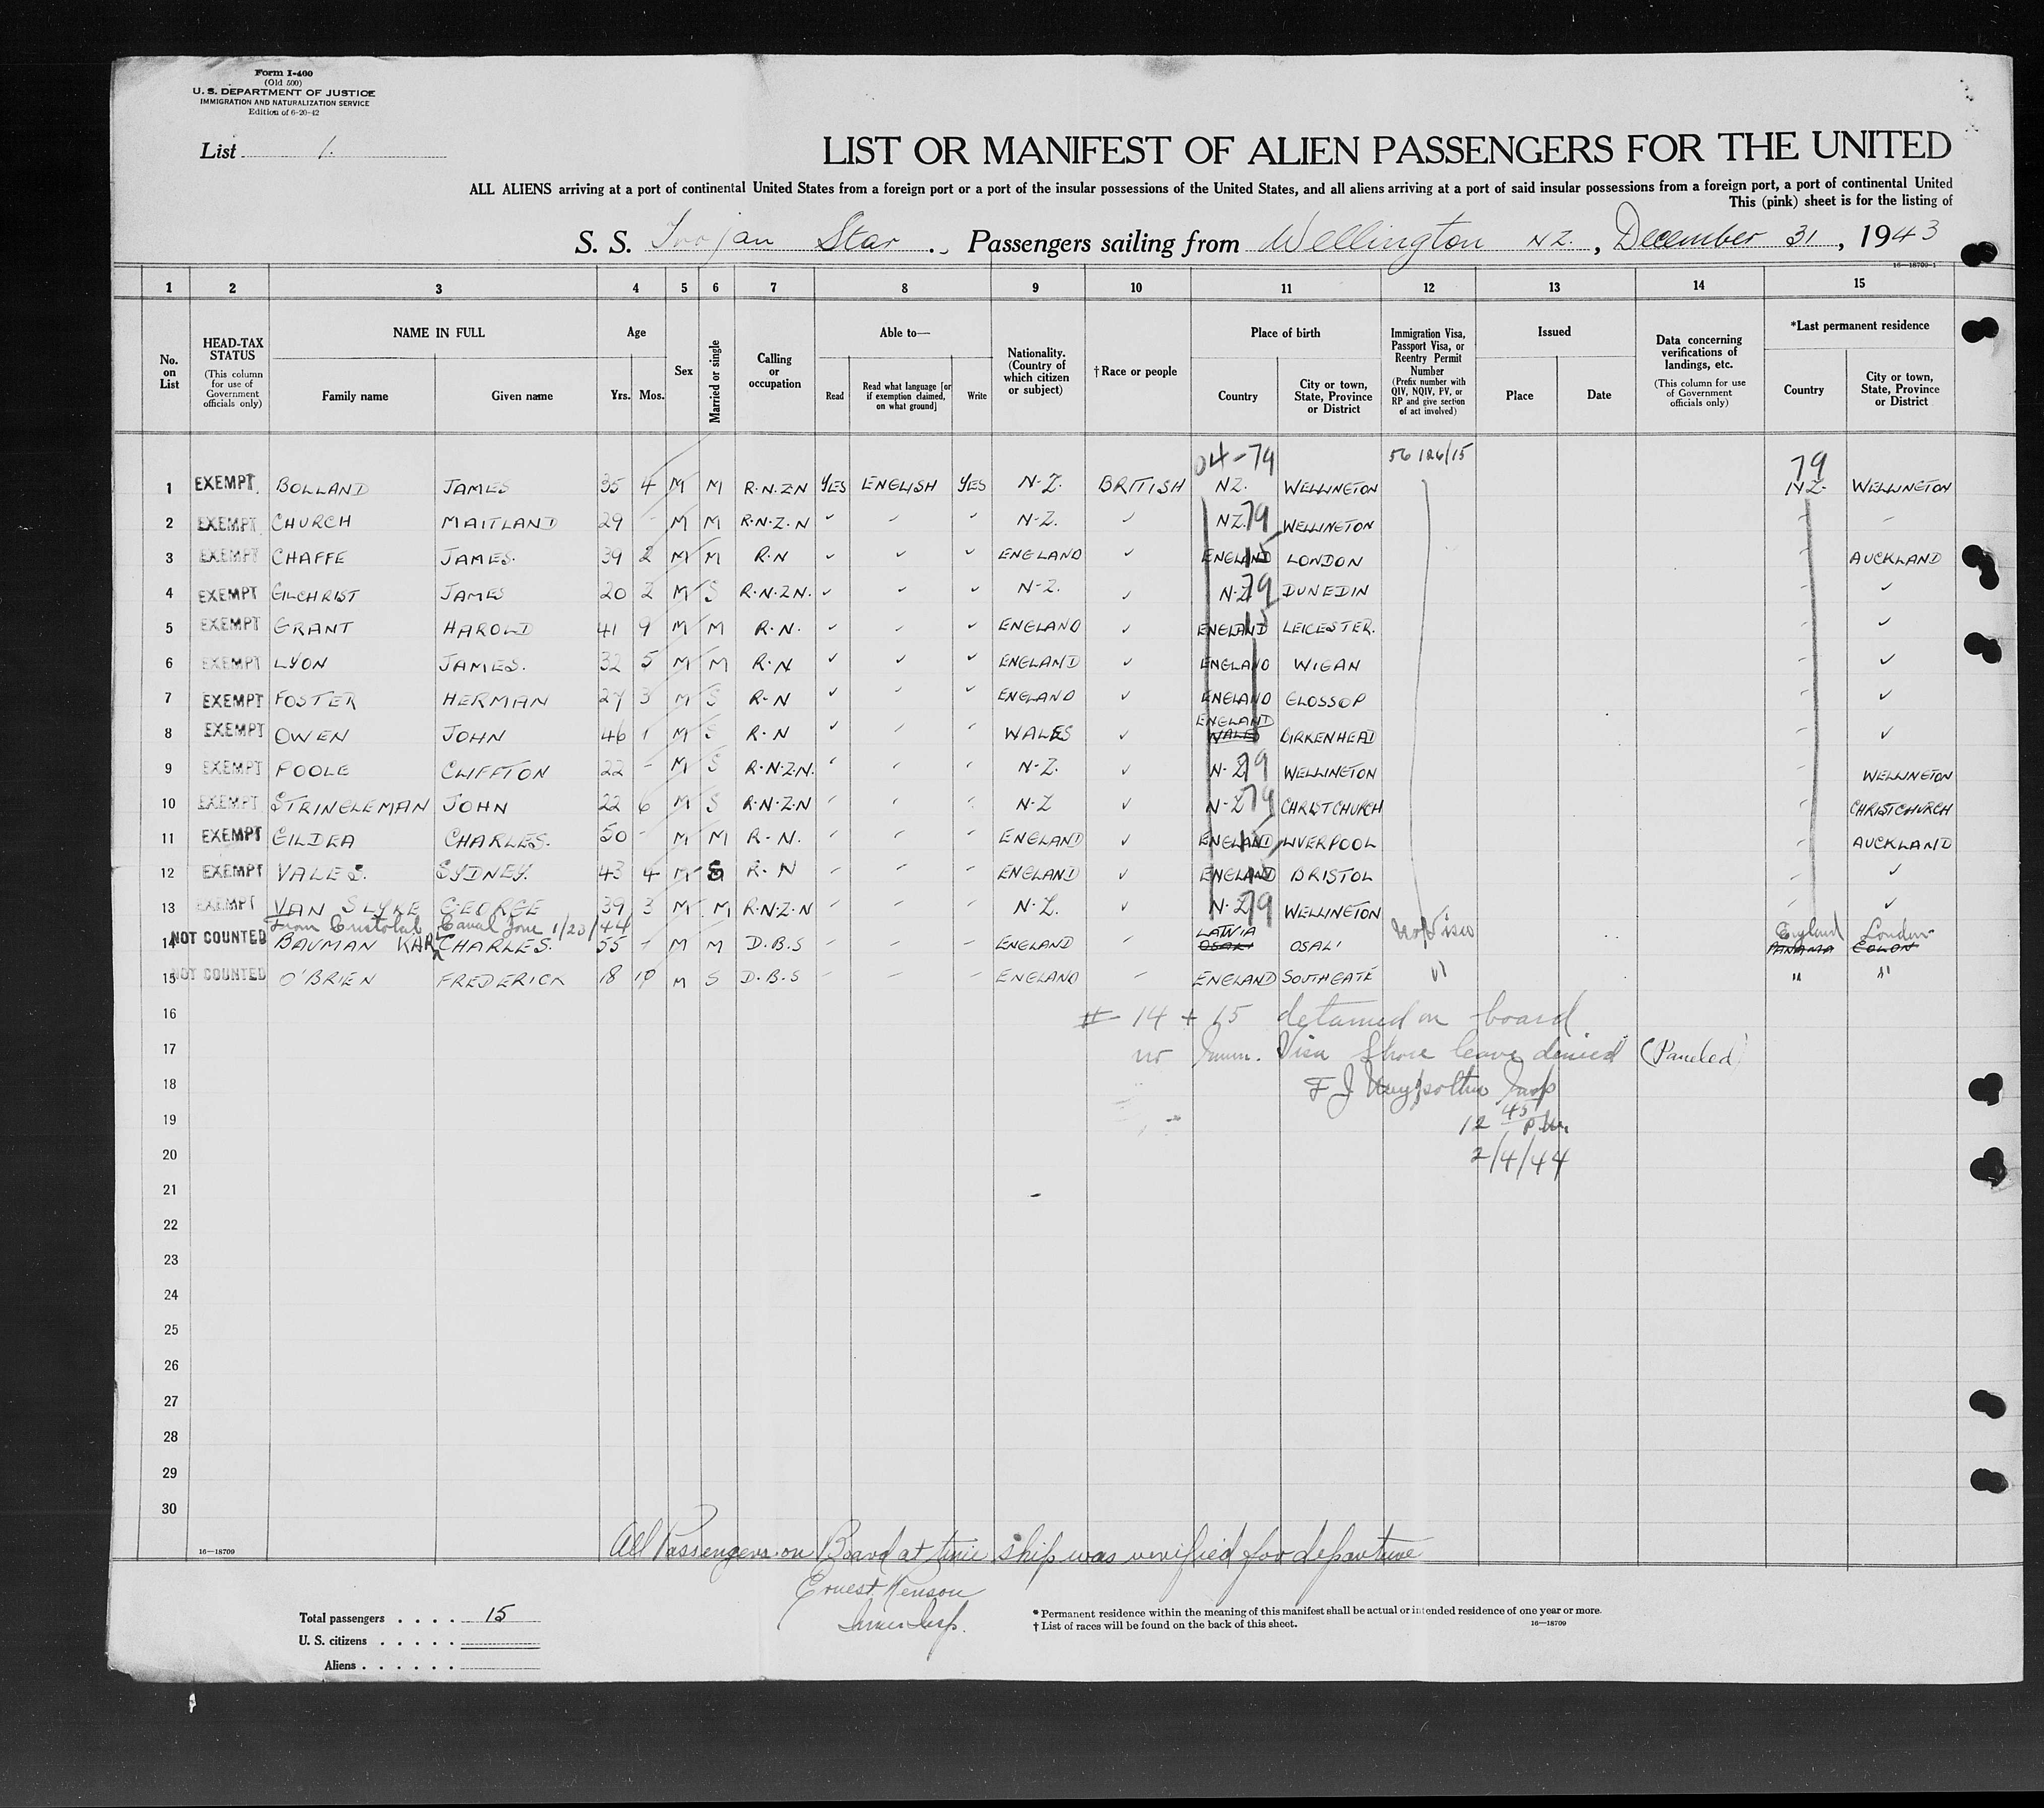 Form I-400
(Old 500)
U. S. DEPARTMENT OF JUSTICE
IMMIGRATION AND NATURALIZATION SERVICE
Edition of 6-20-42
List 1.
LIST OR MANIFEST OF ALIEN PASSENGERS FOR THE UNITED
ALL ALIENS arriving at a port of continental United States from a foreign port or a port of the insular possessions of the United States, and all aliens arriving at a port of said insular possessions from a foreign port, a port of continental United
This (pink) sheet is for the listing of
S. S. Trojan Star , Passengers sailing from Wellington NZ. , December 31 , 1943
16—18709-1
1 2 3 4 5 6 7 8 9 10 11 12 13 14 15
No. on List HEAD-TAX STATUS (This column for use of Government officials only) NAME IN FULL Family name Given name Age Yrs. Mos. Sex Married or single Calling or occupation Able to— Read Read what language [or if exemption claimed, on what ground] Write Nationality. (Country of which citizen or subject) † Race or people Place of birth Country City or town, State, Province or District Immigration Visa, Passport Visa, or Reentry Permit Number (Prefix number with QIV, NQIV, PV, or RP and give section of act involved) Issued Place Date Data concerning verifications of landings, etc. (This column for use of Government officials only) *Last permanent residence Country City or town, State, Province or District
04-79 56 126/15 79
1 EXEMPT BOLLAND JAMES 35 4 M M R.N.Z.N YES ENGLISH YES N-Z. BRITISH NZ. WELLINGTON N.Z. WELLINGTON
2 EXEMPT CHURCH MAITLAND 29 - M M R.N.Z.N ✓ ✓ ✓ N-Z. ✓ NZ. 79 WELLINGTON
3 EXEMPT CHAFFE JAMES. 39 2 M M R.N ✓ ✓ ✓ ENGLAND ✓ ENGLAND 15 LONDON AUCKLAND
4 EXEMPT GILCHRIST JAMES 20 2 M S R.N.Z.N. ✓ ✓ ✓ N-Z. ✓ N-Z 79 DUNEDIN ✓
5 EXEMPT GRANT HAROLD 41 9 M M R.N. ✓ ✓ ✓ ENGLAND ✓ ENGLAND 15 LEICESTER. ✓
6 EXEMPT LYON JAMES. 32 5 M M R.N ✓ ✓ ✓ ENGLAND ✓ ENGLAND WIGAN ✓
7 EXEMPT FOSTER HERMAN 27 3 M S R.N ✓ ✓ ✓ ENGLAND ✓ ENGLAND GLOSSOP ✓
8 EXEMPT OWEN JOHN 46 1 M S R.N ✓ ✓ ✓ WALES ✓ ENGLAND WALES BIRKENHEAD ✓
9 EXEMPT POOLE CLIFFTON 22 - M S R.N.Z.N. ✓ ✓ ✓ N-Z. ✓ N-Z 79 WELLINGTON WELLINGTON
10 EXEMPT STRINGLEMAN JOHN 22 6 M S R.N.Z.N ✓ ✓ ✓ N-Z ✓ N-Z 79 CHRISTCHURCH CHRISTCHURCH
11 EXEMPT GILDEA CHARLES. 50 - M M R.N. ✓ ✓ ✓ ENGLAND ✓ ENGLAND 15 LIVERPOOL AUCKLAND
12 EXEMPT VALE S. SYDNEY. 43 4 M S R.N ✓ ✓ ✓ ENGLAND ✓ ENGLAND BRISTOL ✓
13 EXEMPT VAN SLYKE GEORGE 39 3 M M R.N.Z.N ✓ ✓ ✓ N.Z. ✓ N-Z 79 WELLINGTON ✓
From Cristobal Canal Zone 1/23/44
14 NOT COUNTED BAUMAN KARL CHARLES. 55 - M M D.B.S ENGLAND LATVIA OSAKI OSALI No Visa England PANAMA London COLON
15 NOT COUNTED O'BRIEN FREDERICK 18 10 M S D.B.S ENGLAND ENGLAND SOUTHGATE " " "
16 # 14 + 15 detained on board
17 no Imm. Visa Shore leave denied (Paroled)
18 F J Insp
19 12 45 P.M.
20 2/4/44
21
22
23
24
25
26
27
28
29
30
All Passengers on Board at time ship was verified for departure
16—18709
Ernest Henson
Immer Insp.
Total passengers . . . . 15
U. S. citizens . . . . .
Aliens . . . . . .
* Permanent residence within the meaning of this manifest shall be actual or intended residence of one year or more.
† List of races will be found on the back of this sheet.
16—18709